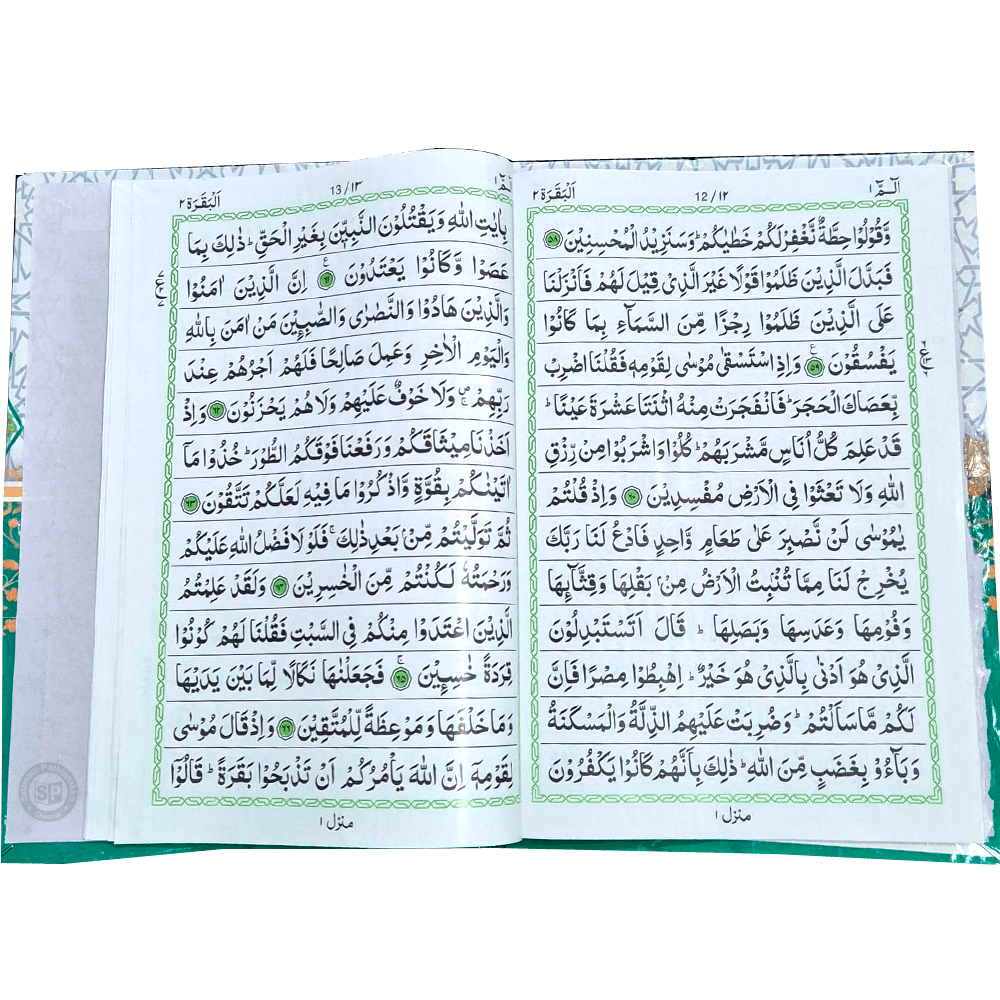 الٓمّٓ ١
12/١٢
اَلْبَقَرَة ٢
وَّقُوْلُوْا حِطَّةٌ نَّغْفِرْ لَكُمْ خَطٰيٰكُمْ ؕ وَسَنَزِيْدُ الْمُحْسِنِيْنَ ۝٥٨
فَبَدَّلَ الَّذِيْنَ ظَلَمُوْا قَوْلًا غَيْرَ الَّذِيْ قِيْلَ لَهُمْ فَاَنْزَلْنَا
عَلَى الَّذِيْنَ ظَلَمُوْا رِجْزًا مِّنَ السَّمَآءِ بِمَا كَانُوْا
يَفْسُقُوْنَ ۝٥٩ وَاِذِ اسْتَسْقٰى مُوْسٰى لِقَوْمِهٖ فَقُلْنَا اضْرِبْ
بِّعَصَاكَ الْحَجَرَ ؕ فَانْفَجَرَتْ مِنْهُ اثْنَتَا عَشْرَةَ عَيْنًا ؕ
قَدْ عَلِمَ كُلُّ اُنَاسٍ مَّشْرَبَهُمْ ؕ كُلُوْا وَاشْرَبُوْا مِنْ رِّزْقِ
اللّٰهِ وَلَا تَعْثَوْا فِى الْاَرْضِ مُفْسِدِيْنَ ۝٦٠ وَاِذْ قُلْتُمْ
يٰمُوْسٰى لَنْ نَّصْبِرَ عَلٰى طَعَامٍ وَّاحِدٍ فَادْعُ لَنَا رَبَّكَ
يُخْرِجْ لَنَا مِمَّا تُنْۢبِتُ الْاَرْضُ مِنْۢ بَقْلِهَا وَقِثَّآئِهَا
وَفُوْمِهَا وَعَدَسِهَا وَبَصَلِهَا ؕ قَالَ اَتَسْتَبْدِلُوْنَ
الَّذِيْ هُوَ اَدْنٰى بِالَّذِيْ هُوَ خَيْرٌ ؕ اِهْبِطُوْا مِصْرًا فَاِنَّ
لَكُمْ مَّا سَاَلْتُمْ ؕ وَضُرِبَتْ عَلَيْهِمُ الذِّلَّةُ وَالْمَسْكَنَةُ
وَبَآءُوْ بِغَضَبٍ مِّنَ اللّٰهِ ؕ ذٰلِكَ بِاَنَّهُمْ كَانُوْا يَكْفُرُوْنَ
منزل ١
13/١٣
اَلْبَقَرَة ٢
بِاٰيٰتِ اللّٰهِ وَيَقْتُلُوْنَ النَّبِيّٖنَ بِغَيْرِ الْحَقِّ ؕ ذٰلِكَ بِمَا
عَصَوْا وَّكَانُوْا يَعْتَدُوْنَ ۝٦١ اِنَّ الَّذِيْنَ اٰمَنُوْا
وَالَّذِيْنَ هَادُوْا وَالنَّصٰرٰى وَالصّٰبِـِٕيْنَ مَنْ اٰمَنَ بِاللّٰهِ
وَالْيَوْمِ الْاٰخِرِ وَعَمِلَ صَالِحًا فَلَهُمْ اَجْرُهُمْ عِنْدَ
رَبِّهِمْ ۪ۚ وَلَا خَوْفٌ عَلَيْهِمْ وَلَا هُمْ يَحْزَنُوْنَ ۝٦٢ وَاِذْ
اَخَذْنَا مِيْثَاقَكُمْ وَرَفَعْنَا فَوْقَكُمُ الطُّوْرَ ؕ خُذُوْا مَآ
اٰتَيْنٰكُمْ بِقُوَّةٍ وَّاذْكُرُوْا مَا فِيْهِ لَعَلَّكُمْ تَتَّقُوْنَ ۝٦٣
ثُمَّ تَوَلَّيْتُمْ مِّنْۢ بَعْدِ ذٰلِكَ ۚ فَلَوْلَا فَضْلُ اللّٰهِ عَلَيْكُمْ
وَرَحْمَتُهٗ لَكُنْتُمْ مِّنَ الْخٰسِرِيْنَ ۝٦٤ وَلَقَدْ عَلِمْتُمُ
الَّذِيْنَ اعْتَدَوْا مِنْكُمْ فِى السَّبْتِ فَقُلْنَا لَهُمْ كُوْنُوْا
قِرَدَةً خٰسِـِٕيْنَ ۝٦٥ فَجَعَلْنٰهَا نَكَالًا لِّمَا بَيْنَ يَدَيْهَا
وَمَا خَلْفَهَا وَمَوْعِظَةً لِّلْمُتَّقِيْنَ ۝٦٦ وَاِذْ قَالَ مُوْسٰى
لِقَوْمِهٖٓ اِنَّ اللّٰهَ يَاْمُرُكُمْ اَنْ تَذْبَحُوْا بَقَرَةً ؕ قَالُوْٓا
منزل ١
SP